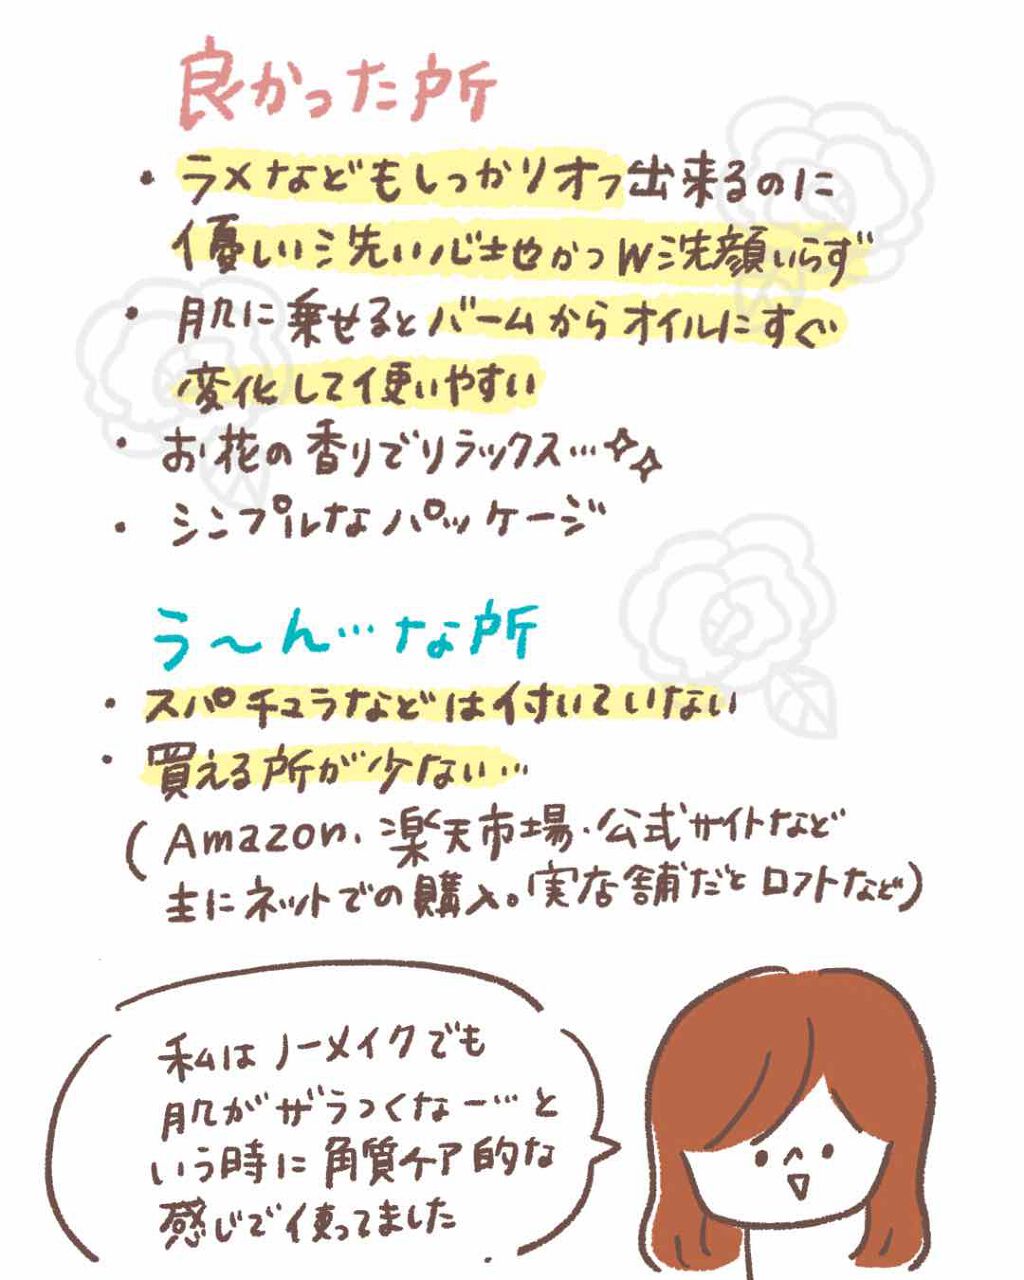 良かった所
・ラメなどもしっかりオフ出来るのに
優しい洗い心地かつW洗顔いらず
・肌に乗せるとバームからオイルにすぐ
変化して使いやすい
・お花の香りでリラックス…✧✧
・シンプルなパッケージ
う〜ん…な所
・スパチュラなどは付いていない
・買える所が少ない…
(Amazon、楽天市場・公式サイトなど
主にネットでの購入。実店舗だとロフトなど)
私はノーメイクでも
肌がザラつくなー…と
いう時に角質ケア的な
感じで使ってました